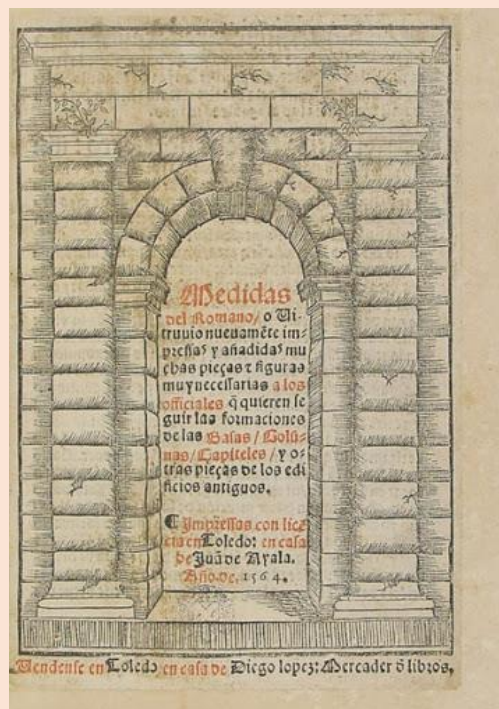 Medidas
del Romano/ o Vi-
truuio nueuamẽte im-
pressas y añadidas mu
chas pieças τ figuras
muy necessarias a los
officiales q̃ quieren se
guir las formaciones
de las Basas/ Colũ-
nas/ Capiteles/ y o-
tras pieças de los edi
ficios antiguos.
¶ Impressas con licẽ
cia en Toledo: en casa
de Juã de Ayala.
Año de. 1564.
Vendense en Toledo en casa de Diego lopez: Mercader õ libros.